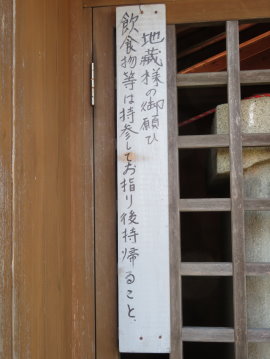 地蔵様の御願ひ
飲食物等は持参してお指り後持帰ること